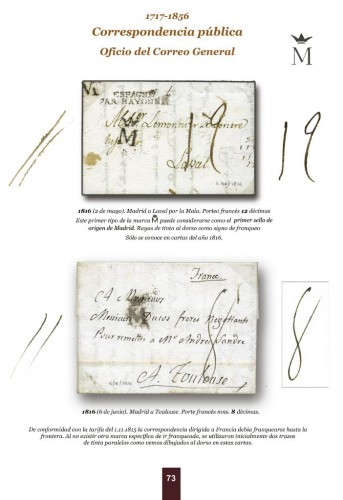 1717-1856
Correspondencia pública
Oficio del Correo General
M
ESPAGNE
PAR BAYONNE
M
Laval
19
19
1816 (2 de mayo). Madrid a Laval por la Mala. Porteo francés 12 décimas
Este primer tipo de la marca M puede considerarse como el primer sello de
origen de Madrid. Rayas de tinta al dorso como signo de franqueo
Sólo se conoce en cartas del año 1816.
France
A Messieurs
Messieurs Ducos freres Negotiants
Pour remettre a Mr Andre
A. Toulouse
8
8
1816 (6 de junio). Madrid a Toulouse. Porte francés mns. 8 décimas.
De conformidad con la tarifa del 1.11.1815 la correspondencia dirigida a Francia debía franquearse hasta la
frontera. Al no existir otra marca específica de ir franqueada, se utilizaron inicialmente dos trazos
de tinta paralelos como vemos dibujados al dorso en estas cartas.
73